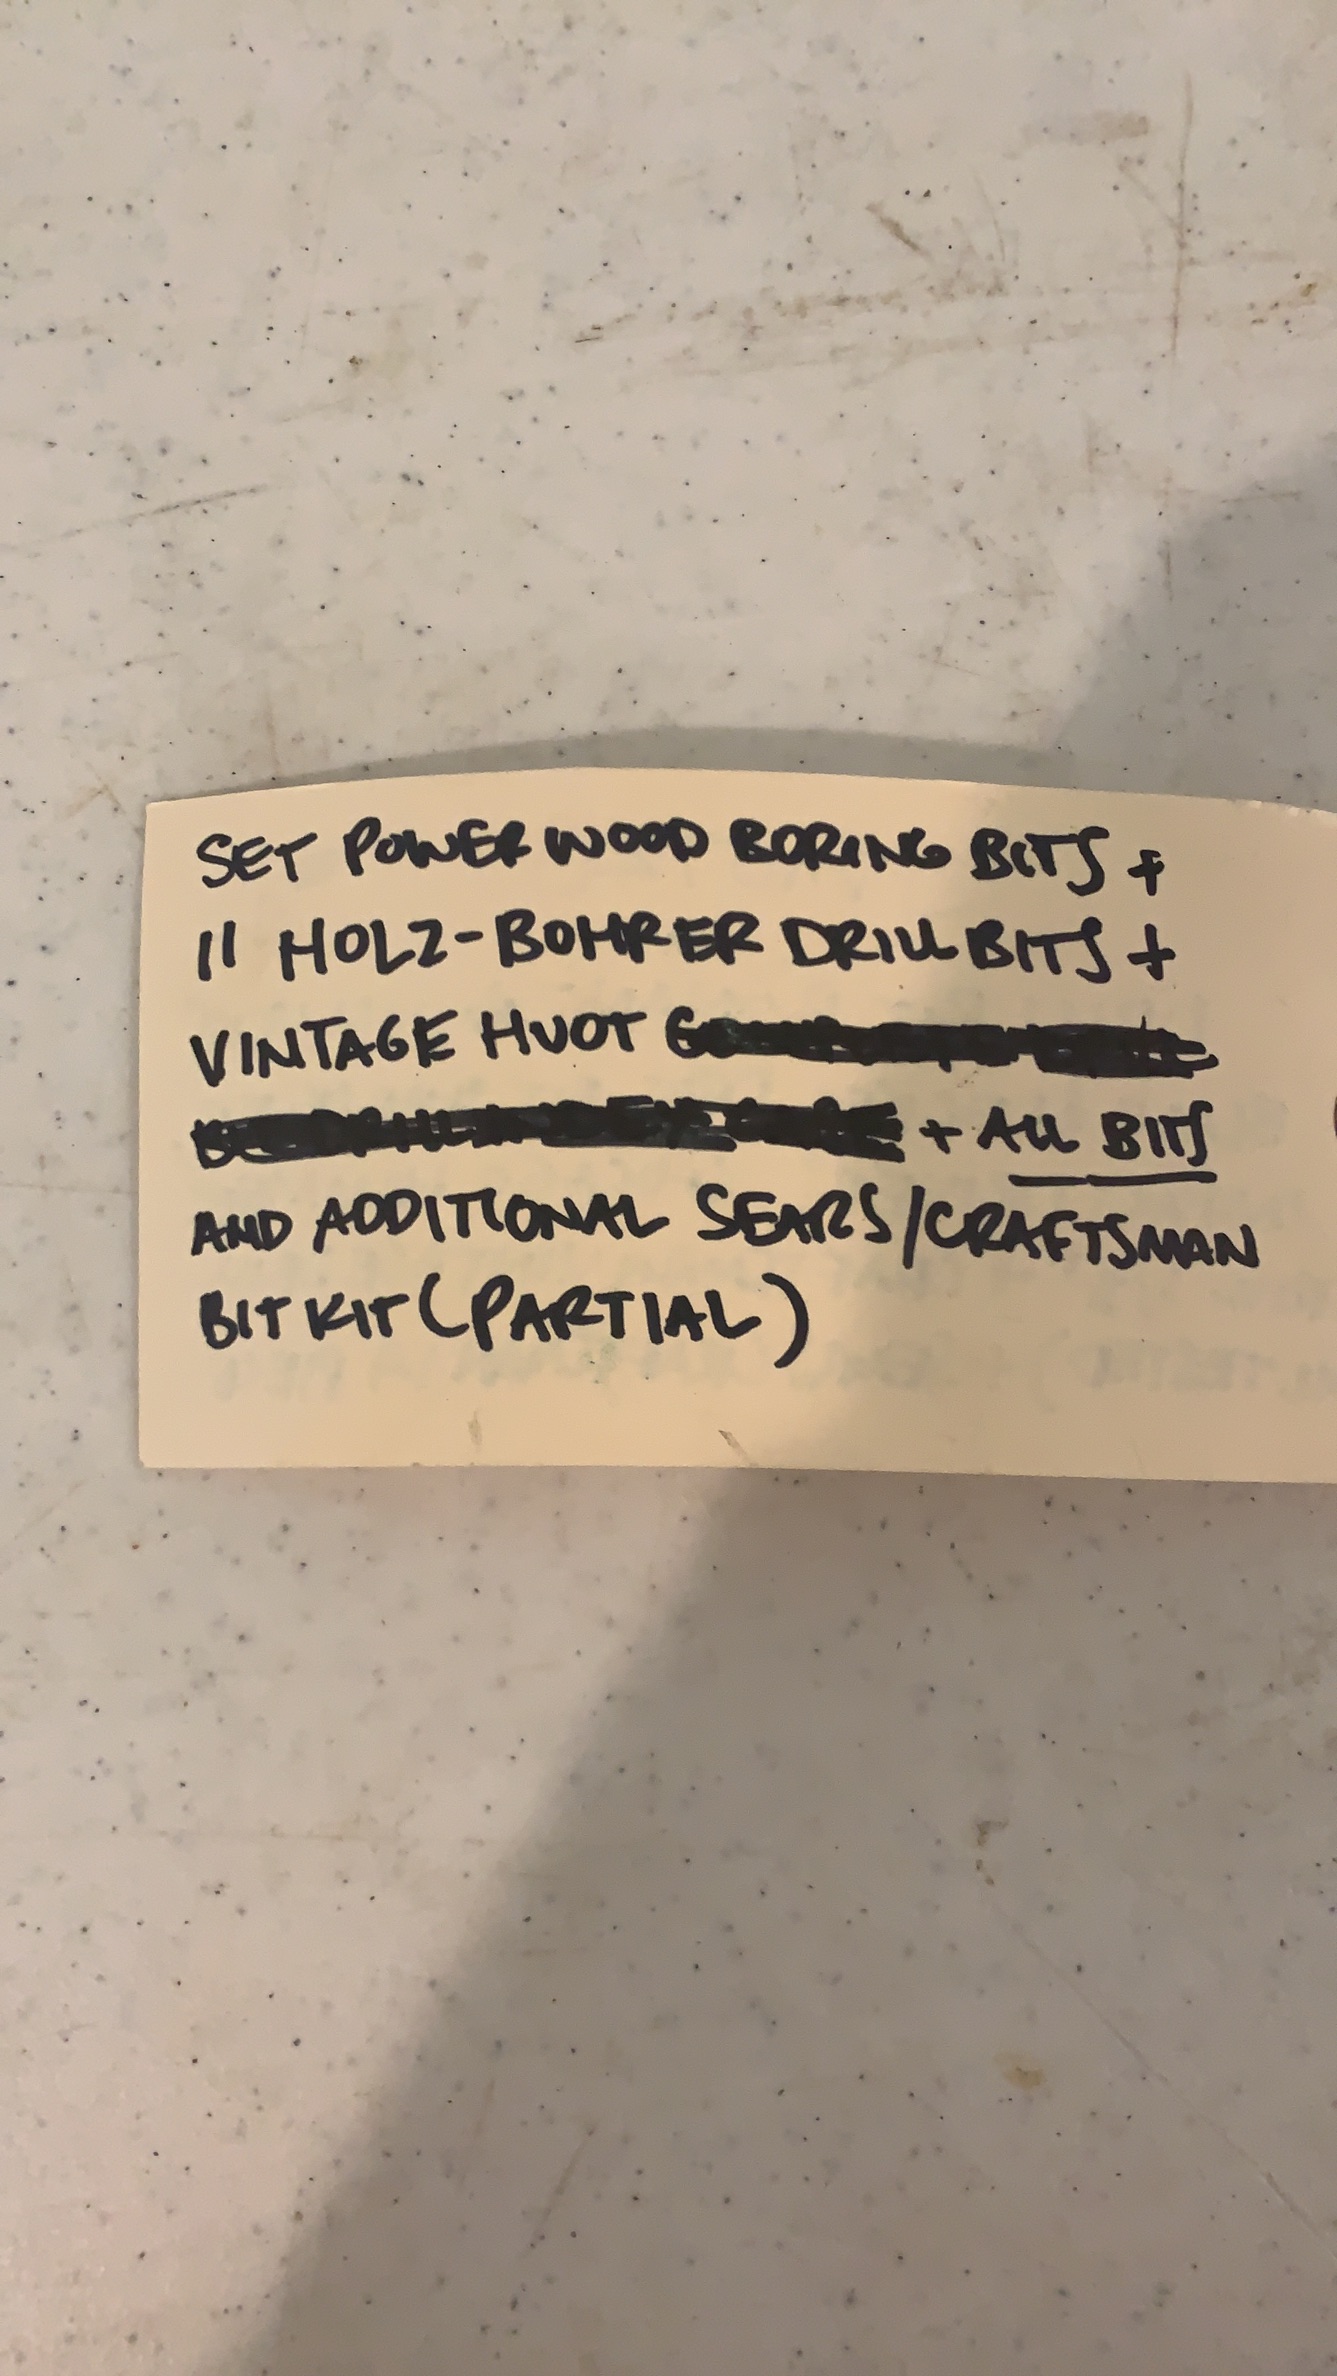 SET POWER WOOD BORING BITS +
11 HOLZ-BOHRER DRILL BITS +
VINTAGE HUOT
+ ALL BITS
AND ADDITIONAL SEARS/CRAFTSMAN
BIT KIT (PARTIAL)